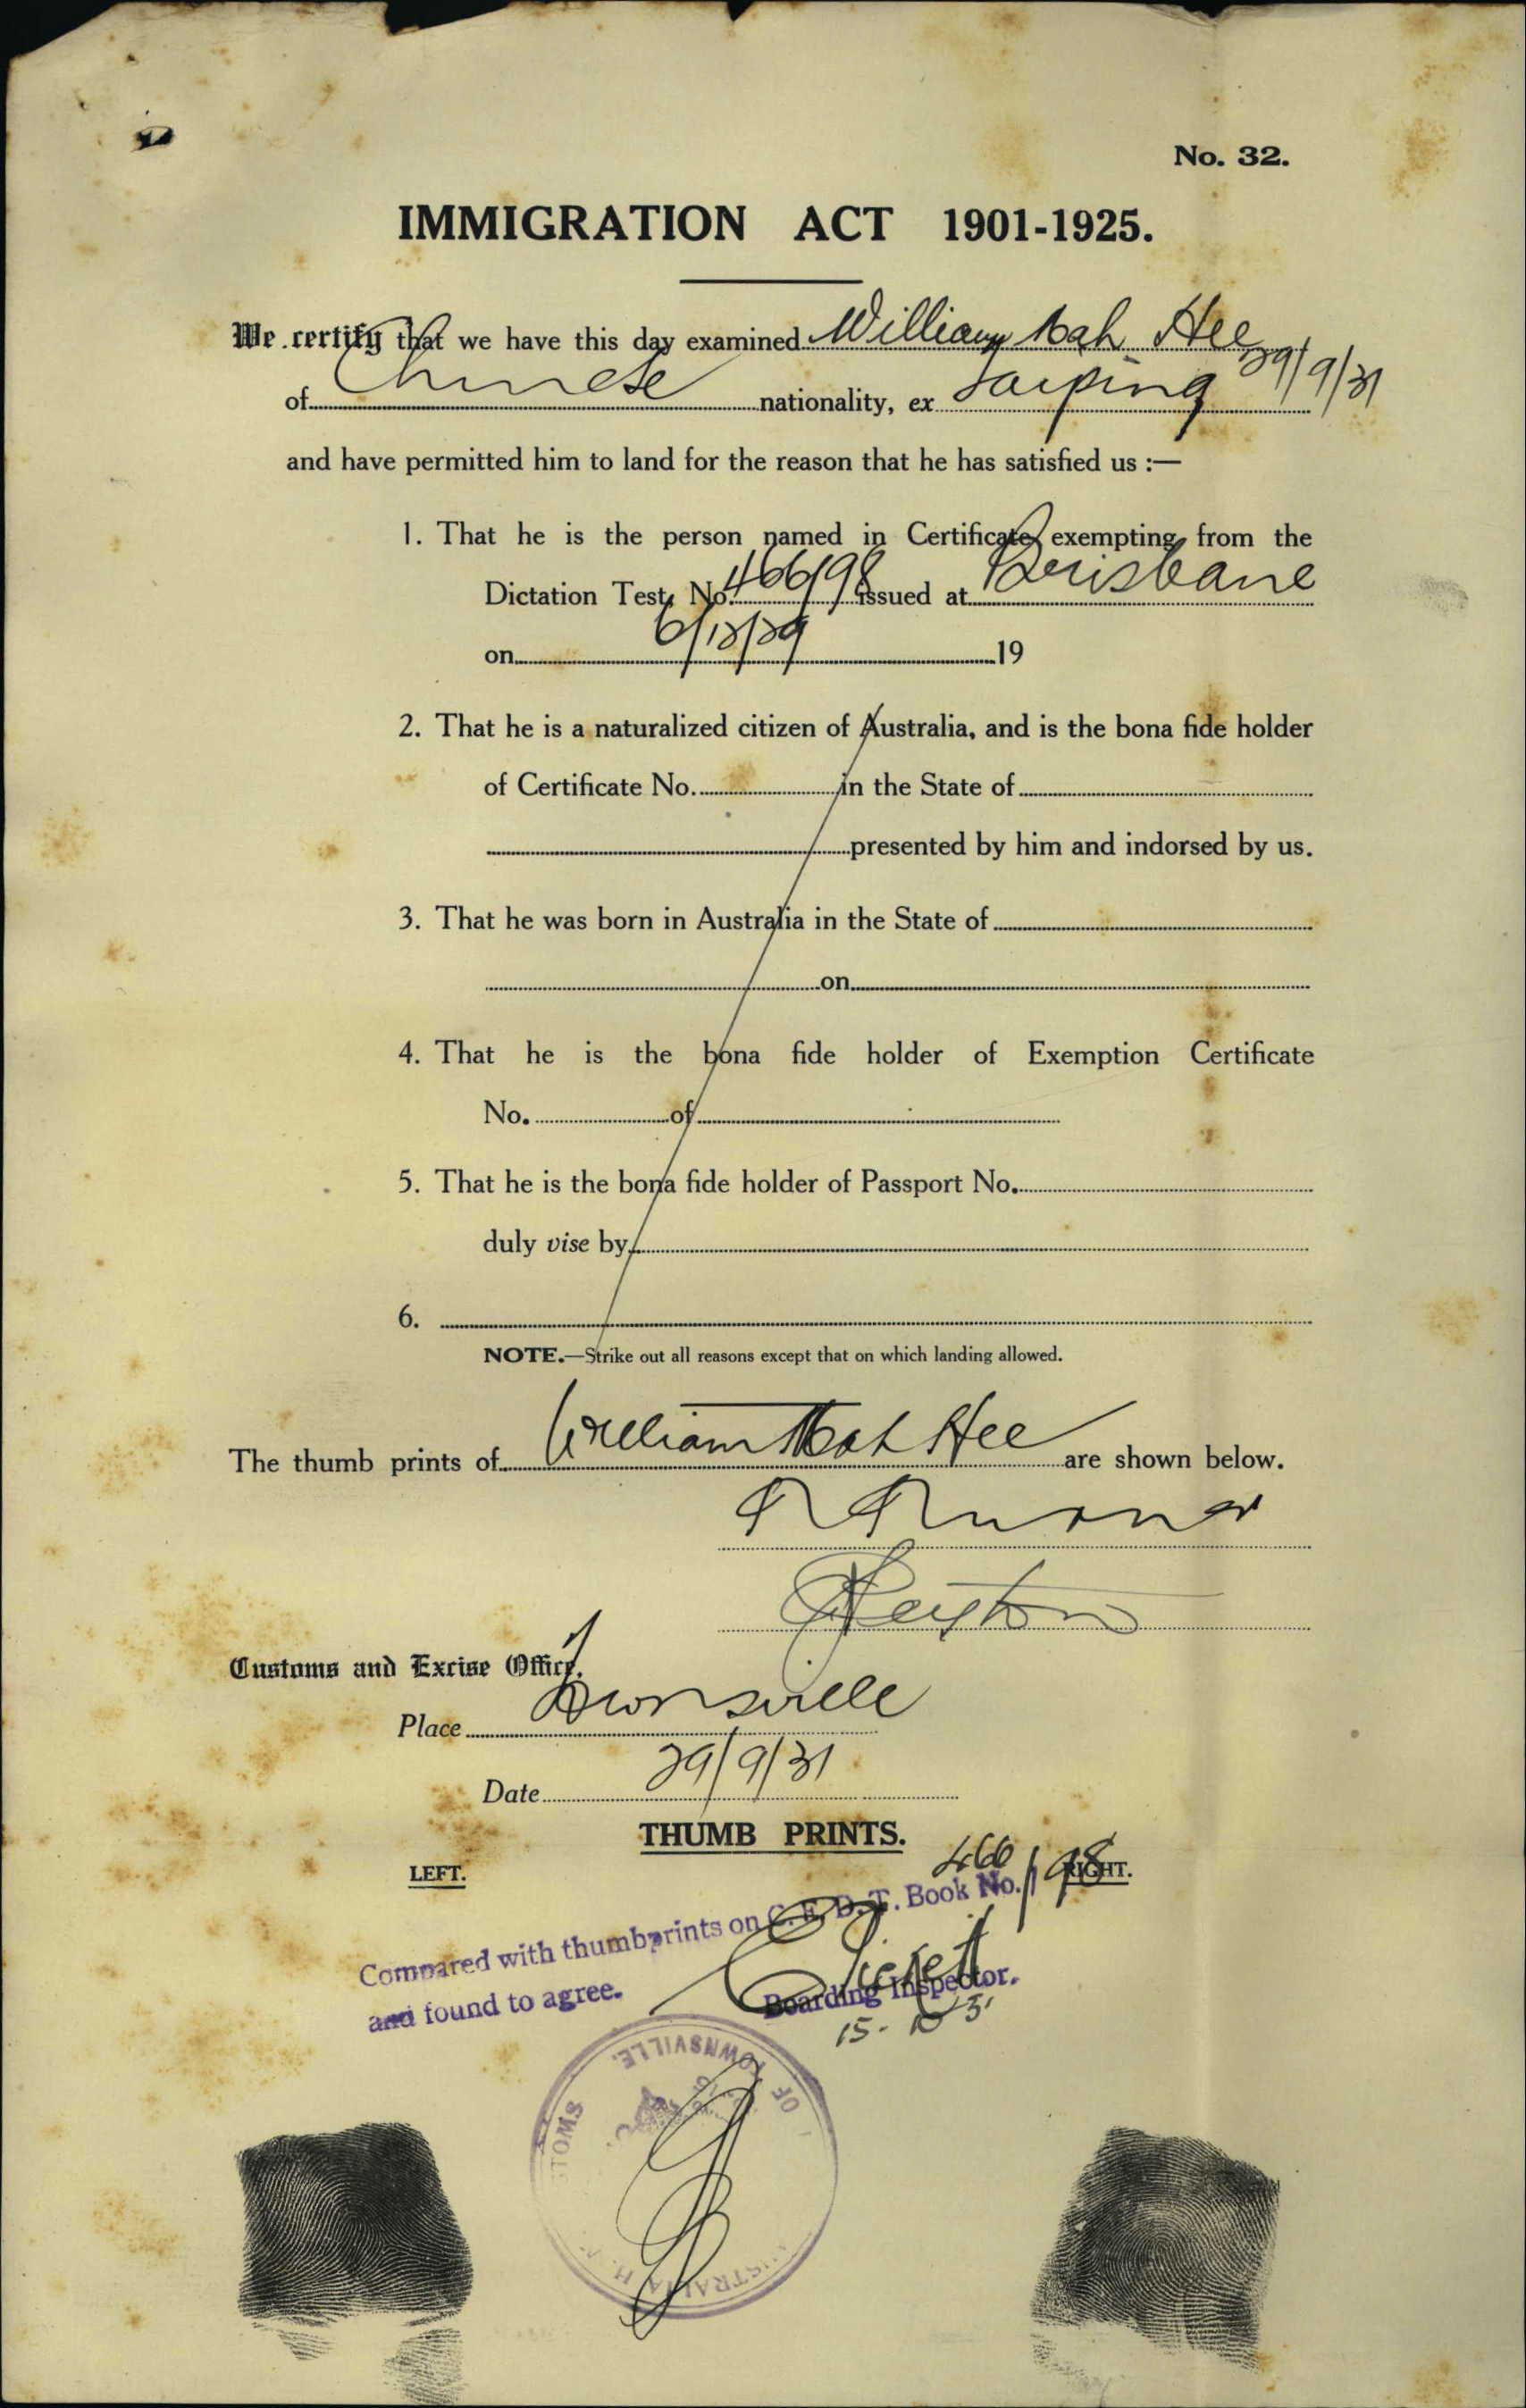 No. 32.
IMMIGRATION ACT 1901-1925.
We certify that we have this day examined William Mah Hee
of Chinese nationality, ex Taiping 29/9/31
and have permitted him to land for the reason that he has satisfied us :—
1. That he is the person named in Certificate exempting from the
Dictation Test, No. 466/98 issued at Brisbane
on 6/12/29 19
2. That he is a naturalized citizen of Australia, and is the bona fide holder
of Certificate No. in the State of
presented by him and indorsed by us.
3. That he was born in Australia in the State of
on
4. That he is the bona fide holder of Exemption Certificate
No. of
5. That he is the bona fide holder of Passport No.
duly vise by
6.
NOTE.—Strike out all reasons except that on which landing allowed.
The thumb prints of William Mah Hee are shown below.
Customs and Excise Office,
Place Townsville
Date 29/9/31
THUMB PRINTS.
LEFT. RIGHT.
Compared with thumbprints on C.E.D.T. Book No. 466/98
and found to agree.
Boarding Inspector.
15.10.31
OF TOWNSVILLE.